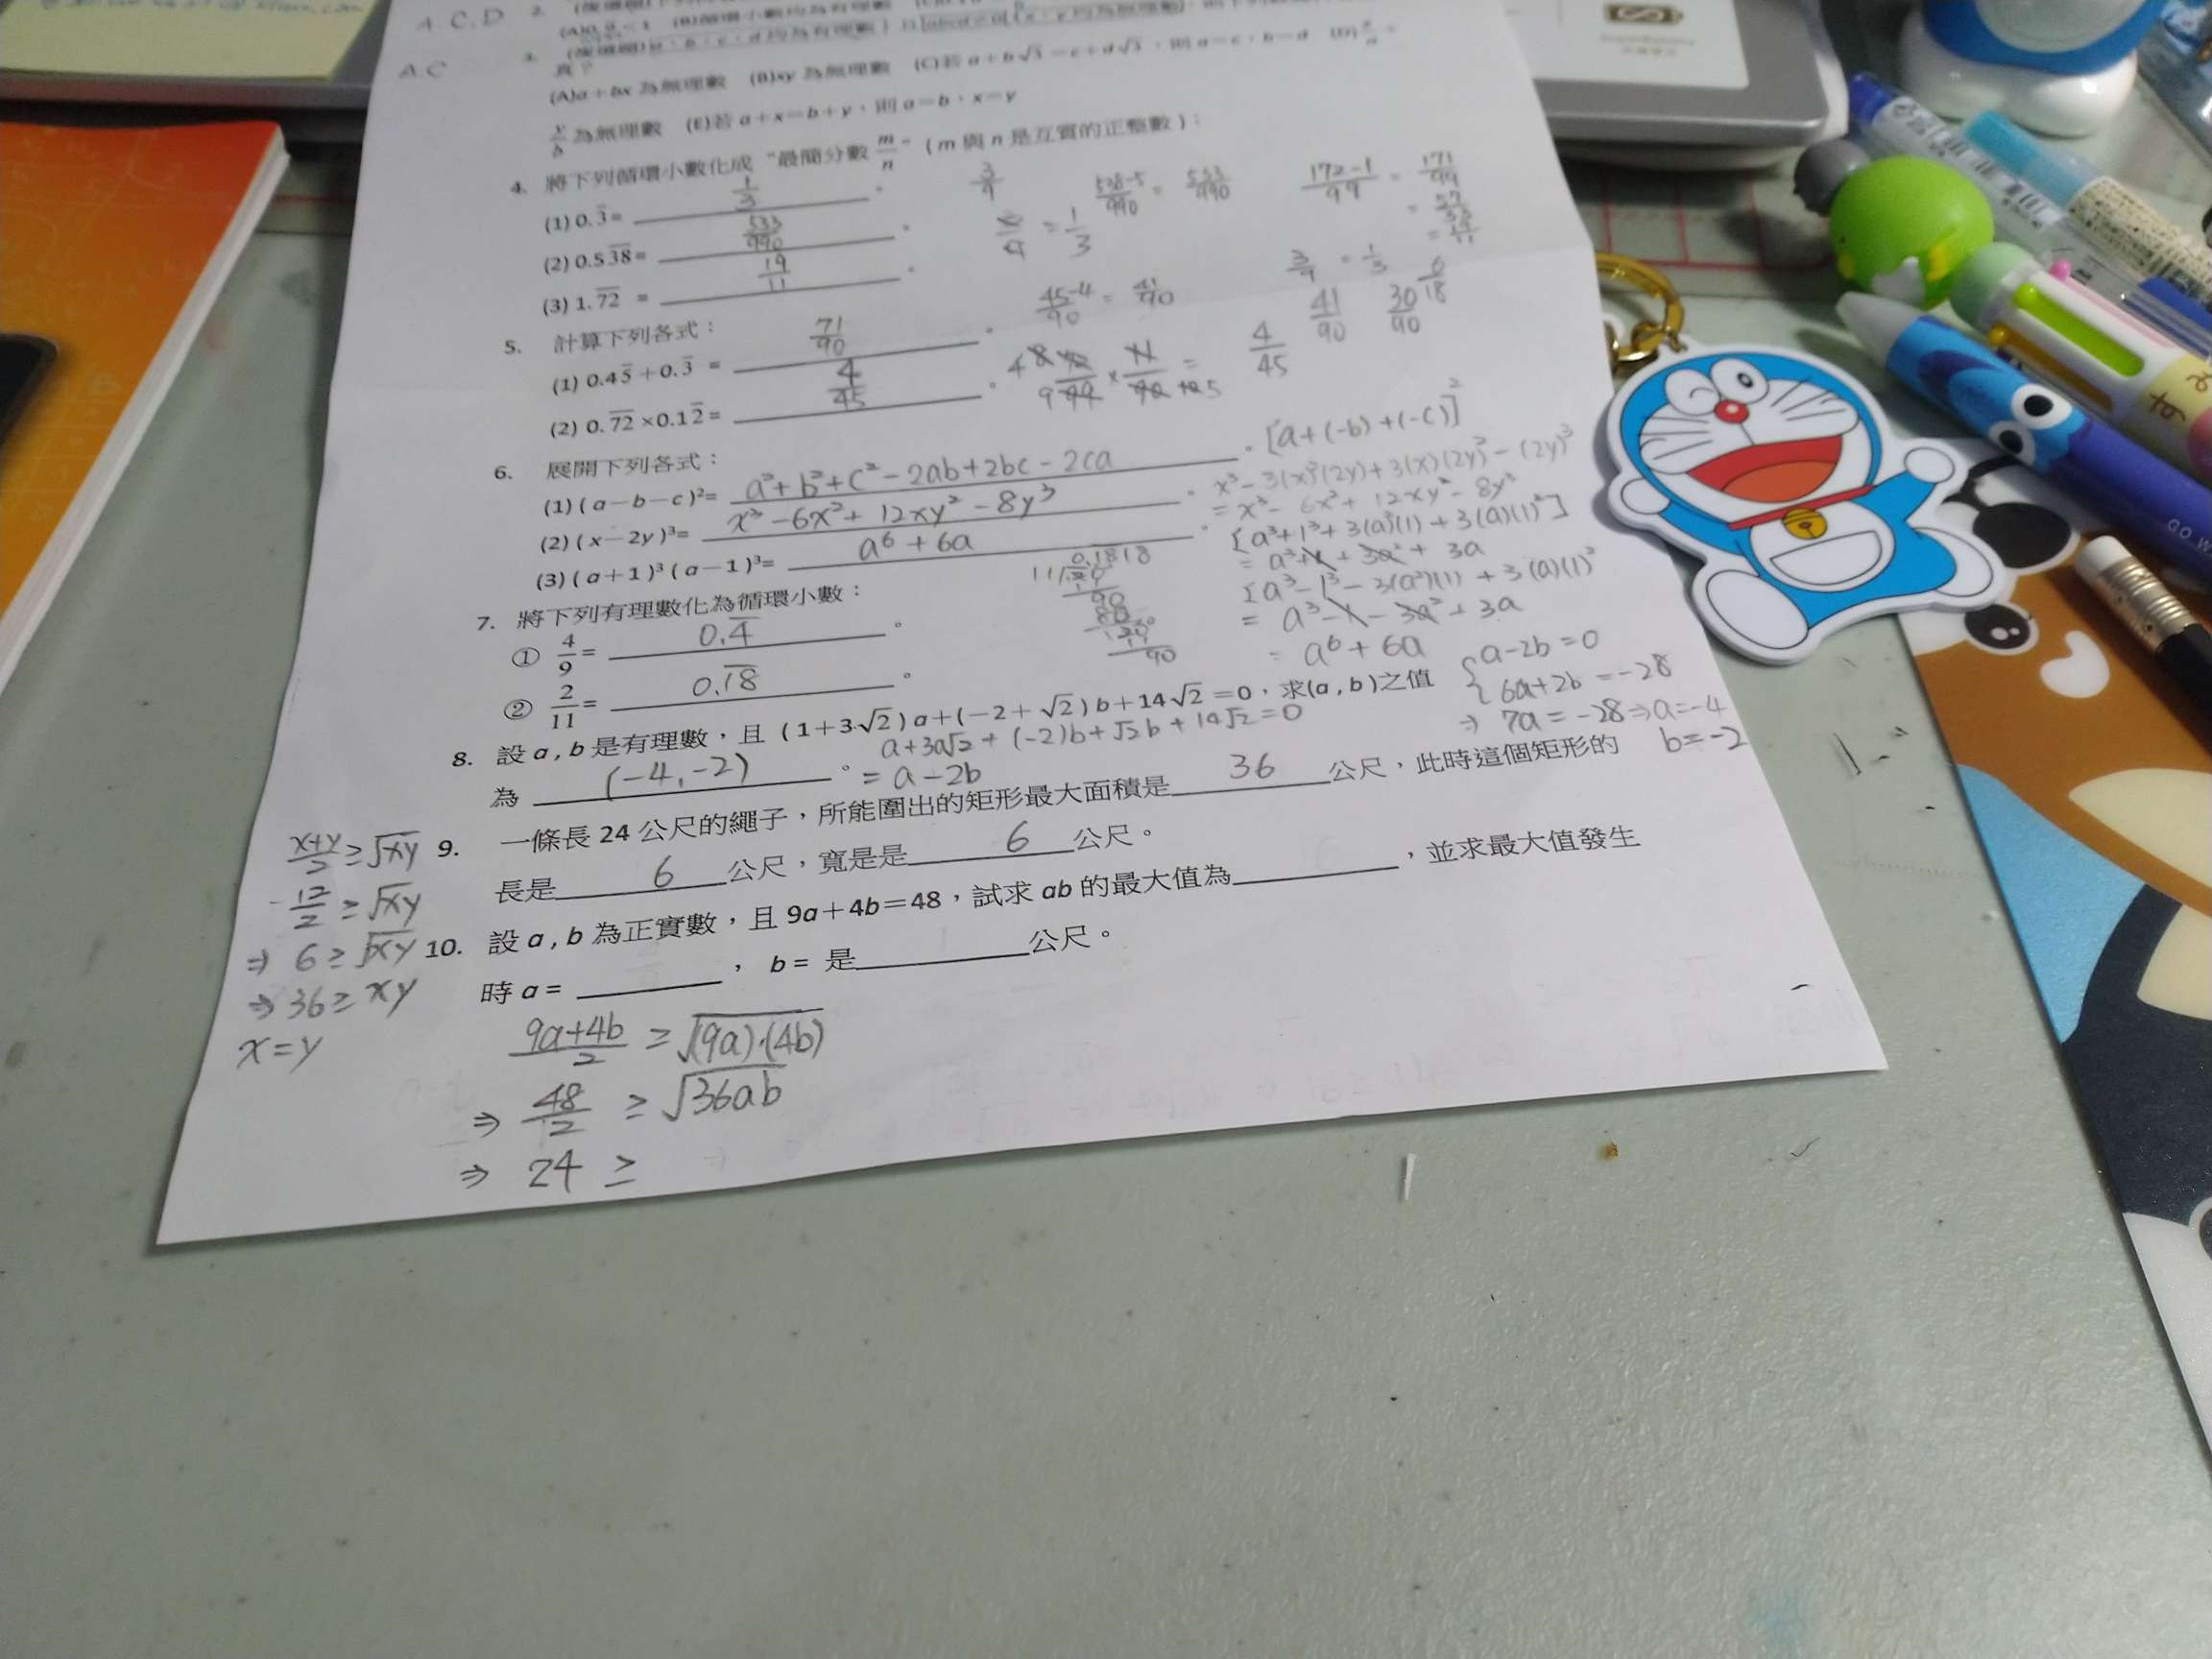 A.C.D 2.
A.C 3.
真？
(A)a＋bx 為無理數 (B)xy 為無理數 (C)若 a＋b√3＝c＋d√3，則 a＝c，b＝d
為無理數 (E)若 a＋x＝b＋y，則 a＝b，x＝y
4. 將下列循環小數化成 “最簡分數 m/n” (m 與 n 是互質的正整數)：
(1) 0.3̅＝ 1/3 。 3/9
(2) 0.53̅8̅＝ 533/990 。 3/9 = 1/3 (538-5)/990 = 533/990
(3) 1.7̅2̅ ＝ 19/11 。 (172-1)/99 = 171/99
5. 計算下列各式：
(1) 0.45̅＋0.3̅ ＝ 71/90 。 (45-4)/90 = 41/90 3/9 = 1/3 41/90 30/90
(2) 0.7̅2̅×0.12̅＝ 4/45 。 = 4/45
6. 展開下列各式：
(1) (a－b－c)²＝ a²+b²+c²-2ab+2bc-2ca 。 [a+(-b)+(-c)]²
(2) (x－2y)³＝ x³-6x²+12xy²-8y³ 。 x³-3(x)²(2y)+3(x)(2y)²-(2y)³
= x³-6x²+12xy²-8y³
(3) (a＋1)³(a－1)³＝ a⁶+6a 。 [a³+1³+3(a²)(1)+3(a)(1)²]
= a³+1+3a²+3a
[a³-1³-3(a²)(1)+3(a)(1)²
= a³-1-3a²+3a
= a⁶+6a
7. 將下列有理數化為循環小數：
① 4/9＝ 0.4̅ 。
② 2/11＝ 0.1̅8̅ 。
0.1818
8. 設 a , b 是有理數，且 (1＋3√2)a＋(－2＋√2)b＋14√2＝0，求(a , b)之值
a+3a√2+(-2)b+√2b+14√2=0
為 (-4,-2) 。 = a-2b
{a-2b=0
6a+2b=-28
⇒ 7a=-28⇒a=-4
b=-2
9. 一條長 24 公尺的繩子，所能圍出的矩形最大面積是 36 公尺，此時這個矩形的
長是 6 公尺，寬是是 6 公尺。
(x+y)/2 ≥ √xy
12/2 ≥ √xy
⇒ 6 ≥ √xy
⇒ 36 ≥ xy
x=y
10. 設 a , b 為正實數，且 9a＋4b＝48，試求 ab 的最大值為________，並求最大值發生
時 a＝________， b＝ 是________公尺。
(9a+4b)/2 ≥ √(9a)·(4b)
⇒ 48/2 ≥ √36ab
⇒ 24 ≥